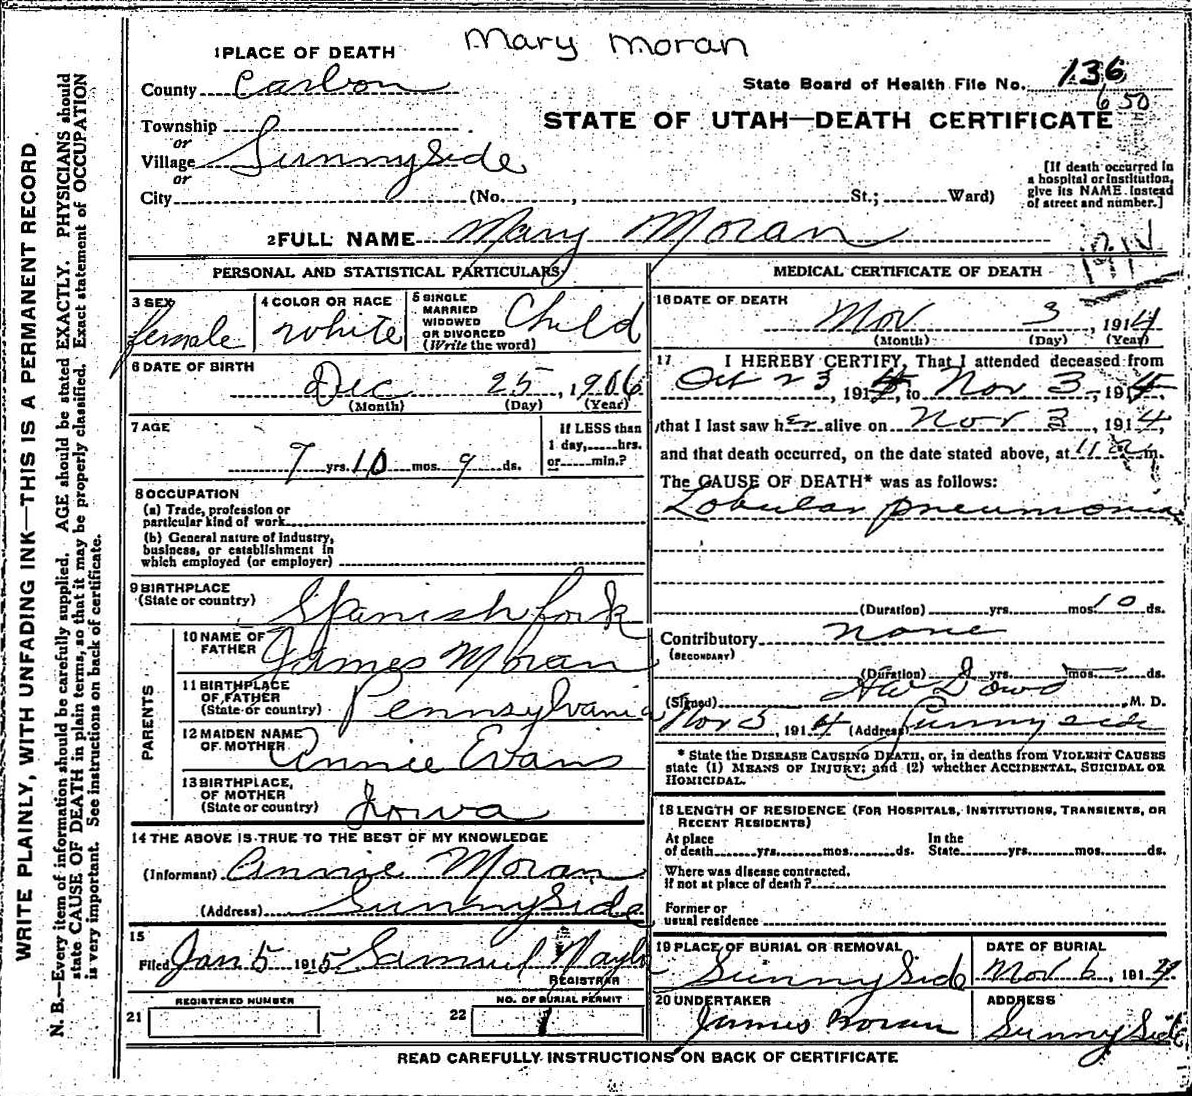 Mary Moran
1 PLACE OF DEATH
County Carbon
State Board of Health File No. 136
650
Township
or
Village Sunnyside
or
City (No. , St.; Ward)
STATE OF UTAH—DEATH CERTIFICATE
[If death occurred in
a hospital or institution,
give its NAME instead
of street and number.]
2 FULL NAME Mary Moran
PERSONAL AND STATISTICAL PARTICULARS
3 SEX
female
4 COLOR OR RACE
white
5 SINGLE
MARRIED
WIDOWED
OR DIVORCED
(Write the word)
Child
6 DATE OF BIRTH
Dec 25, 1906
(Month) (Day) (Year)
7 AGE
7 yrs. 10 mos. 9 ds.
If LESS than
1 day, hrs.
or min.?
8 OCCUPATION
(a) Trade, profession or
particular kind of work
(b) General nature of industry,
business, or establishment in
which employed (or employer)
9 BIRTHPLACE
(State or country) Spanish fork
PARENTS
10 NAME OF
FATHER James Moran
11 BIRTHPLACE
OF FATHER
(State or country) Pennsylvania
12 MAIDEN NAME
OF MOTHER Annie Evans
13 BIRTHPLACE,
OF MOTHER
(State or country) Iowa
14 THE ABOVE IS TRUE TO THE BEST OF MY KNOWLEDGE
(Informant) Annie Moran
(Address) SunnySide
15
Filed Jan 5 1915 Samuel Naylor
REGISTRAR
REGISTERED NUMBER
21
NO. OF BURIAL PERMIT
22 1
MEDICAL CERTIFICATE OF DEATH
16 DATE OF DEATH
Nov 3, 1914
(Month) (Day) (Year)
17 I HEREBY CERTIFY, That I attended deceased from
Oct 23, 191 , to Nov 3, 191
that I last saw her alive on Nov 3, 1914,
and that death occurred, on the date stated above, at 11 a m.
The CAUSE OF DEATH* was as follows:
Lobular pneumonia
(Duration) yrs. mos. 10 ds.
Contributory none
(SECONDARY)
(Duration) yrs. mos. ds.
(Signed) Dowd M. D.
Nov 5, 1914 (Address) Sunnyside
* State the DISEASE CAUSING DEATH, or, in deaths from VIOLENT CAUSES
state (1) MEANS OF INJURY; and (2) whether ACCIDENTAL, SUICIDAL OR
HOMICIDAL.
18 LENGTH OF RESIDENCE (FOR HOSPITALS, INSTITUTIONS, TRANSIENTS, OR
RECENT RESIDENTS)
At place
of death yrs. mos. ds.
In the
State yrs. mos. ds.
Where was disease contracted,
if not at place of death?
Former or
usual residence
19 PLACE OF BURIAL OR REMOVAL
SunnySide
DATE OF BURIAL
Nov 6, 1914
20 UNDERTAKER
James Moran
ADDRESS
SunnySide
READ CAREFULLY INSTRUCTIONS ON BACK OF CERTIFICATE
WRITE PLAINLY, WITH UNFADING INK—THIS IS A PERMANENT RECORD.
N. B.—Every item of information should be carefully supplied. AGE should be stated EXACTLY. PHYSICIANS should
state CAUSE OF DEATH in plain terms, so that it may be properly classified. Exact statement of OCCUPATION
is very important. See instructions on back of certificate.